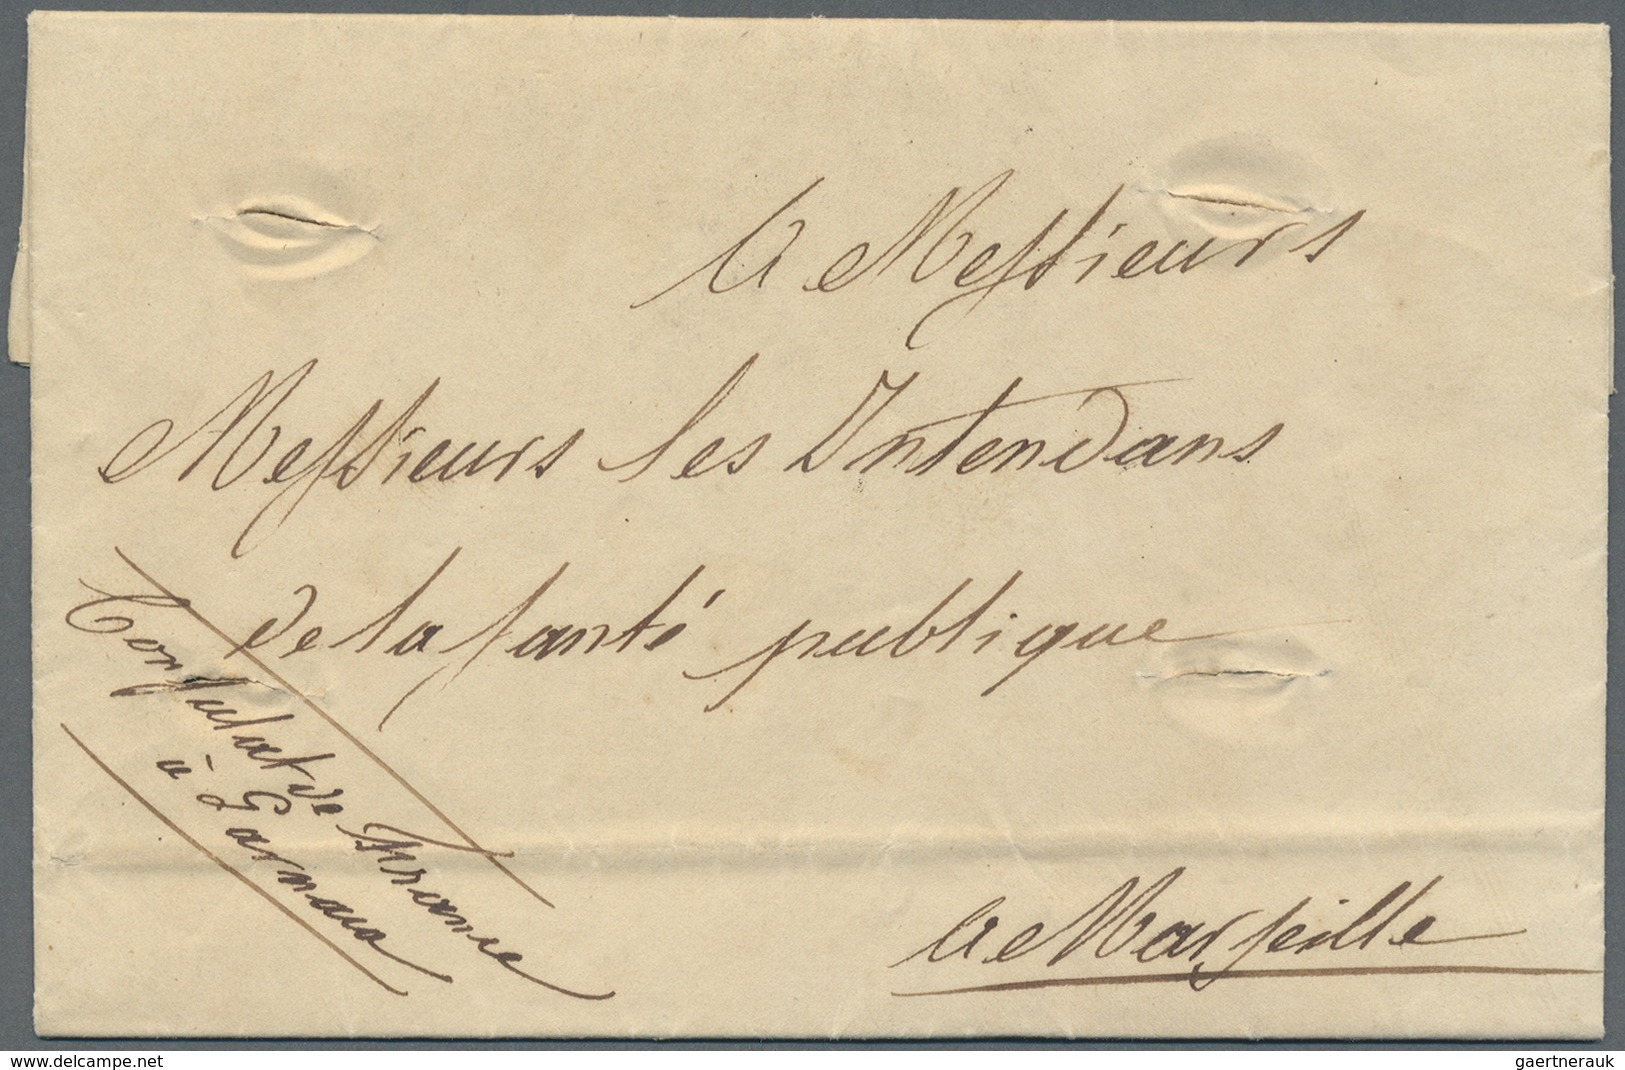 A Messieurs
Messieurs les Intendans
de la santé publique
Consulat de France
à Larnaca
A Marseille
www.delcampe.net
gaertnerauk